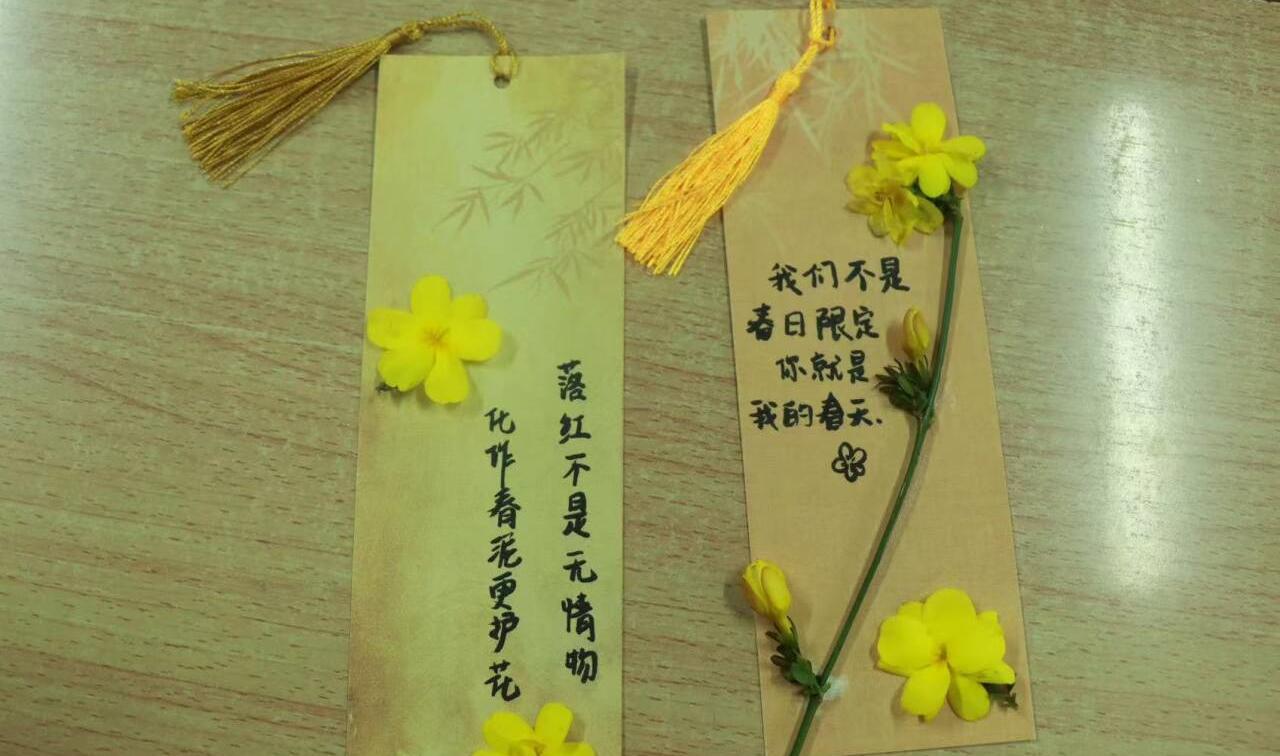 落红不是无情物
化作春泥更护花
我们不是
春日限定
你就是
我的春天.